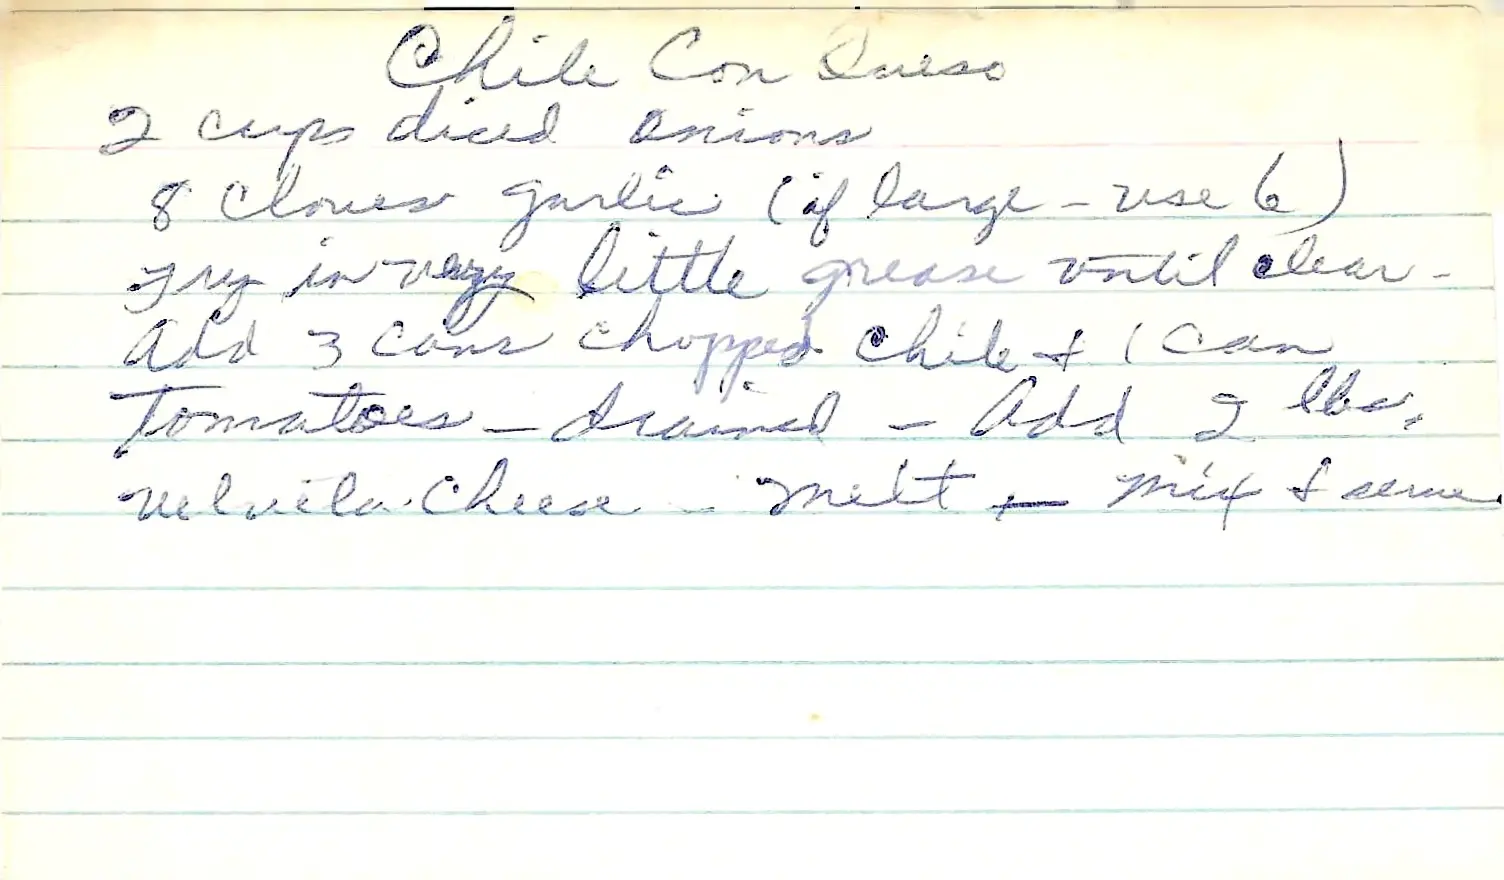 Chile Con Queso
2 cups diced onions
8 cloves garlic (if large - use 6)
Fry in very little grease until clear -
Add 3 cans chopped chile & 1 can
Tomatoes - drained - Add 2 lbs.
Velveeta Cheese - melt - mix & serve.